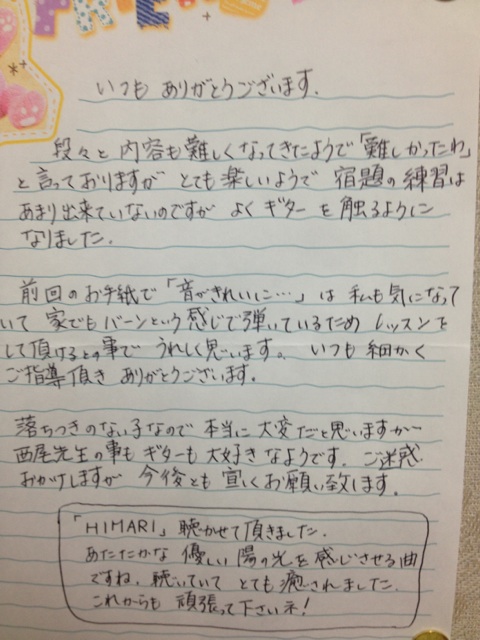 FRIE
いつも ありがとうございます.
段々と 内容も難しくなってきたようで「難しかったわ」
と言っておりますが とても楽しいようで 宿題の練習は
あまり出来ていないのですが よく ギター を 触るように
なりました.
前回のお手紙で「音がきれいに…」は 私も気になって
いて 家でもバーンという感じで弾いているため レッスンを
して頂けるとの事で うれしく思います。 いつも 細かく
ご指導頂き ありがとうございます.
落ちつきのない子なので 本当に 大変だと思いますが…
西尾先生の事も ギターも 大好き なようです. ご迷惑
おかけしますが 今後とも 宜しくお願い致します.
「HIMARI」聴かせて頂きました.
あたたかな 優しい 陽の光を感じさせる曲
ですね. 聴いていて とても癒されました.
これからも 頑張って下さいネ!